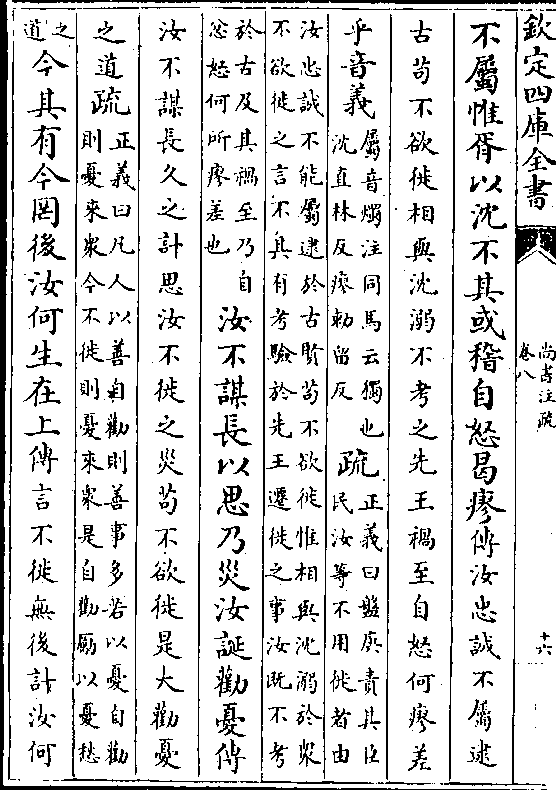 欽定四庫全書
尚書注疏
卷八
十六
不屬惟胥以沈不其或稽自怒曷瘳傳汝忠誠不屬逮
古苟不欲徙相與沈溺不考之先王禍至自怒何瘳差
乎音義
屬音燭注同馬云獨也
沈直林反瘳勑留反
疏
正義曰盤庚責其臣
民汝等不用徙者由
汝忠誠不能屬逮於古賢苟不欲徙惟相與沈溺於衆
不欲徙之言不其有考驗於先王遷徙之事汝既不考
於古及其禍至乃自
忿怒何所瘳差也
汝不謀長以思乃災汝誕勸憂傳
汝不謀長久之計思汝不徙之災苟不欲徙是大勸憂
之道疏
正義曰凡人以善自勸則善事多若以憂自勸
則憂來衆今不徙則憂來衆是自勸勵以憂愁
之
道
今其有今罔後汝何生在上傳言不徙無後計汝何